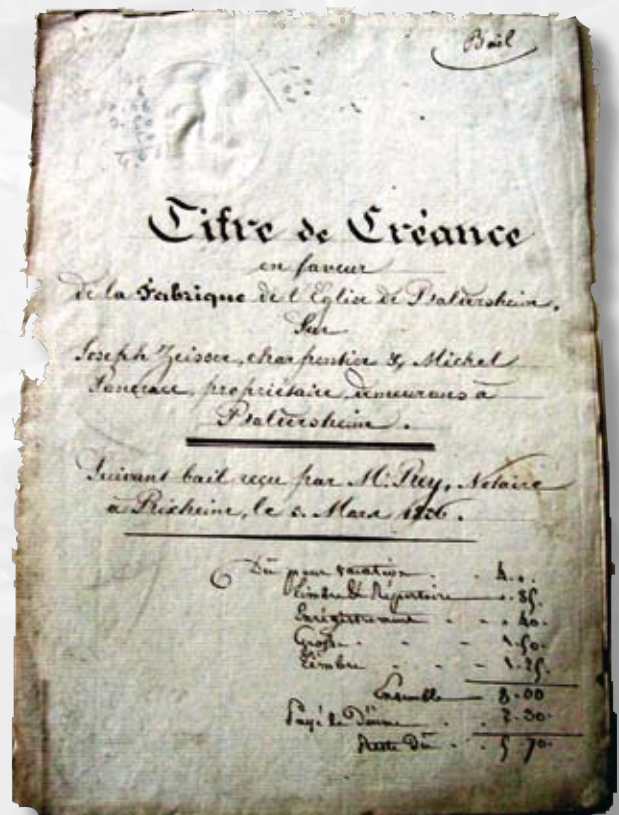 Bail
Titre de Créance
en faveur
de la Fabrique de l'Eglise de
Sur
Joseph Zeisser, charpentier & Michel
propriétaire, demeurans à
Suivant bail reçu par Mᵉ. Notaire
à Rixheim, le Mars
Dû pour vacation 4..
Timbre & Répertoire .. 85.
Enrégistrement - . 40.
Grosse - - 1.50.
Timbre - - - 1.25.
Ensemble 8.00
Payé 2.30.
Reste Dû . . 5.70.